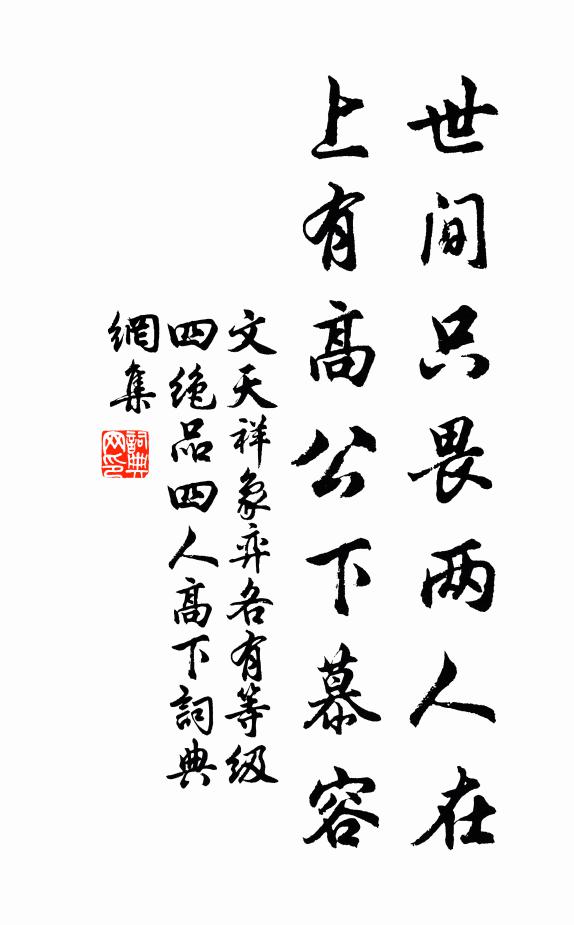 世间只畏两人在
上有高公下慕容
文天祥象弈各有等级
四绝品四人高下詞典
網集
詞典网印